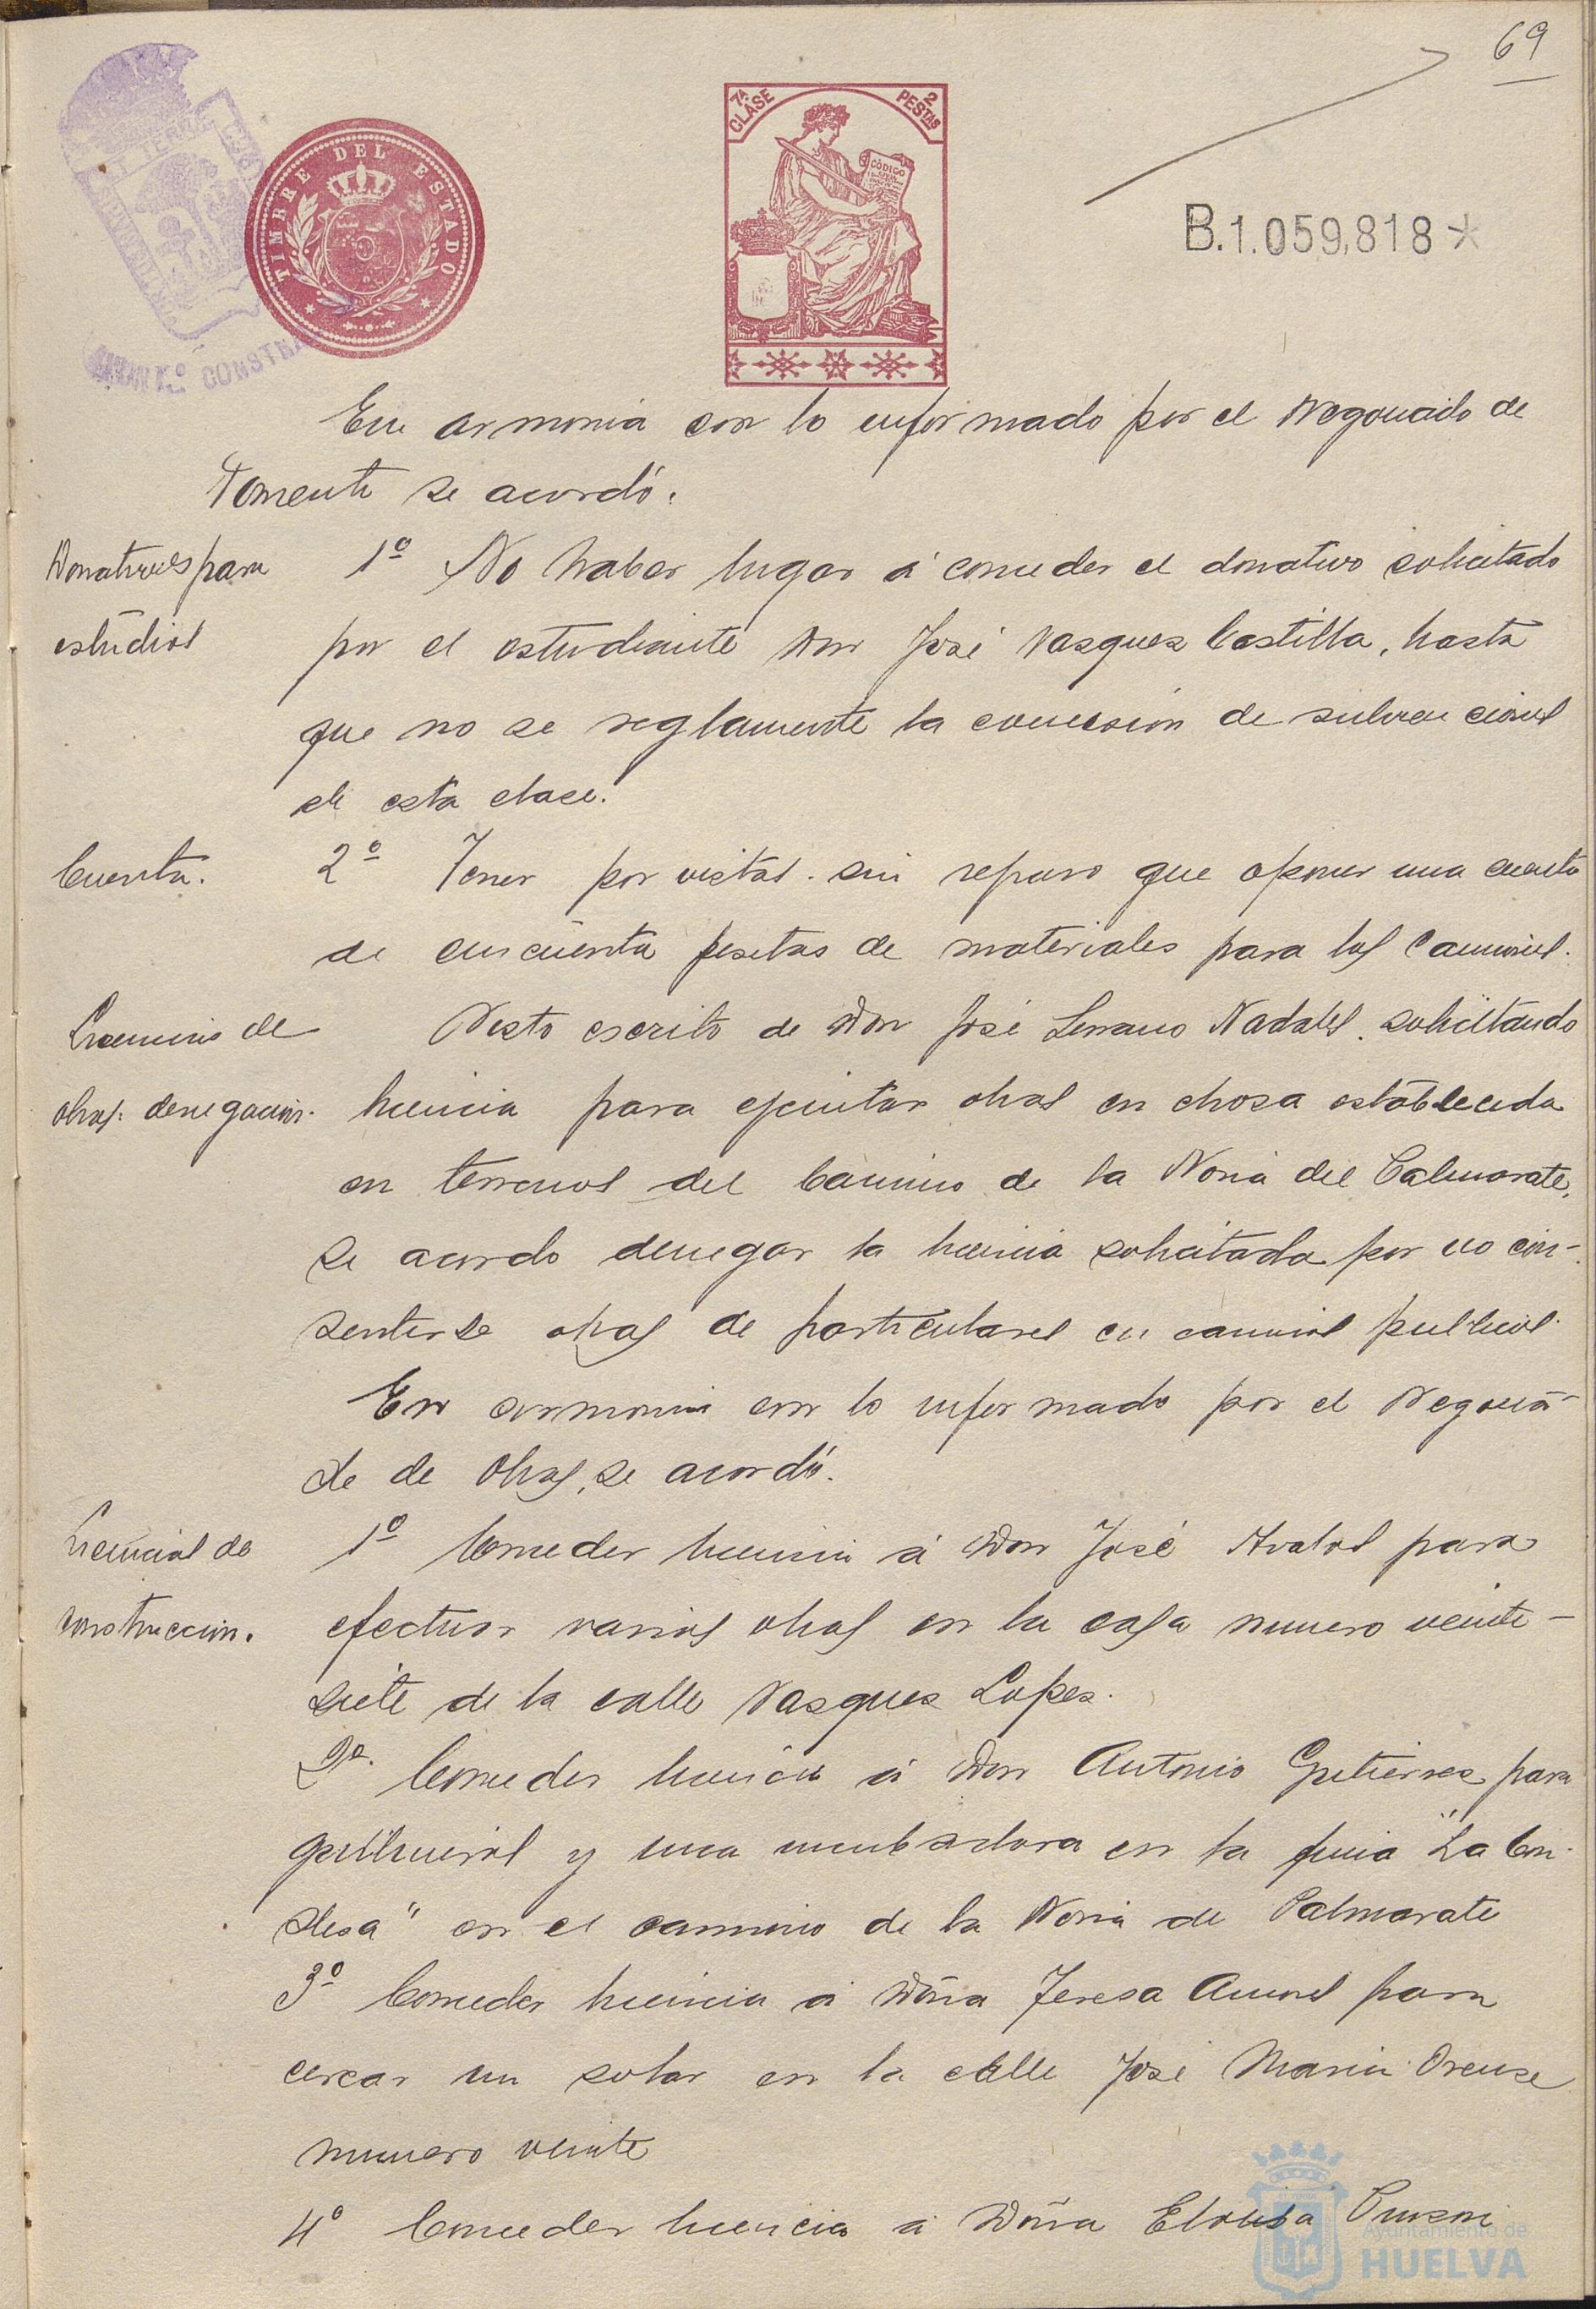 69
7ª CLASE
2 PESTAS
CÓDIGO
TIMBRE DEL ESTADO
B.1.059,818*
CONSTI
En armonia con lo informado por el Negociado de
Fomento se acordó.
Donativos para
estudios
1º No haber lugar á conceder el donativo solicitado
por el estudiante Don José Vasquez Castilla, hasta
que no se reglamente la concesión de subvenciones
de esta clase.
Cuenta.
2º Tener por vista sin reparo que oponer una cuenta
de cincuenta pesetas de materiales para los Caminos.
Licencia de
obras: denegacion.
Visto escrito de Don José Serrano Nadales solicitando
licencia para ejecutar obras en choza establecida
en terrenos del Camino de la Noria del Calmarate,
se acordo denegar la licencia solicitada por no con-
sentirse obras de particulares en caminos publicos.
En armonia con lo informado por el Negocia-
do de Obras, se acordó.
Licencias de
construccion.
1º Conceder licencia á Don José Avalos para
efectuar varias obras en la casa numero veinte-
siete de la calle Vasques Lopes.
2º Conceder licencia á Don Antonio Gutierrez para
gallineros y una incubadora en la finca "La Con-
desa" en el camino de la Noria de Palmarate
3º Conceder licencia á Doña Teresa para
cercar un solar en la calle José Maria Orense
numero veinte
4º Conceder licencia á Doña Eloisa
Ayuntamiento de
HUELVA